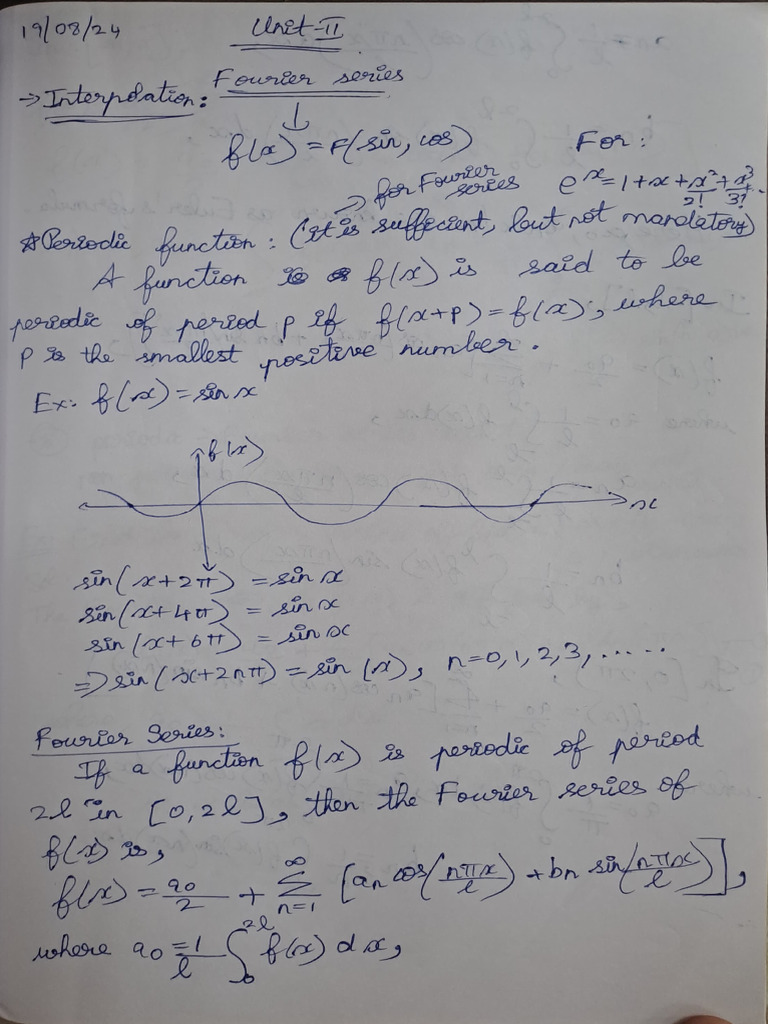 19/08/24
Unit-II
→ Interpolation: Fourier series
↓
f(x) = F(sin, cos)
For:
⇒ for Fourier series
e^x = 1 + x + x²/2! + x³/3! + ..
*Periodic function: (it is sufficient, but not mandatory)
A function f(x) is said to be
periodic of period p if f(x+p) = f(x), where
p is the smallest positive number.
Ex: f(x) = sin x
f(x)
x
sin(x+2π) = sin x
sin(x+4π) = sin x
sin(x+6π) = sin x
⇒ sin(x+2nπ) = sin(x), n=0,1,2,3,......
Fourier Series:
If a function f(x) is periodic of period
2l in [0,2l], then the Fourier series of
f(x) is,
f(x) = a₀/2 + ∑_{n=1}^{∞} [aₙ cos(nπx/l) + bₙ sin(nπx/l)],
where a₀ = 1/l ∫₀^{2l} f(x) dx,